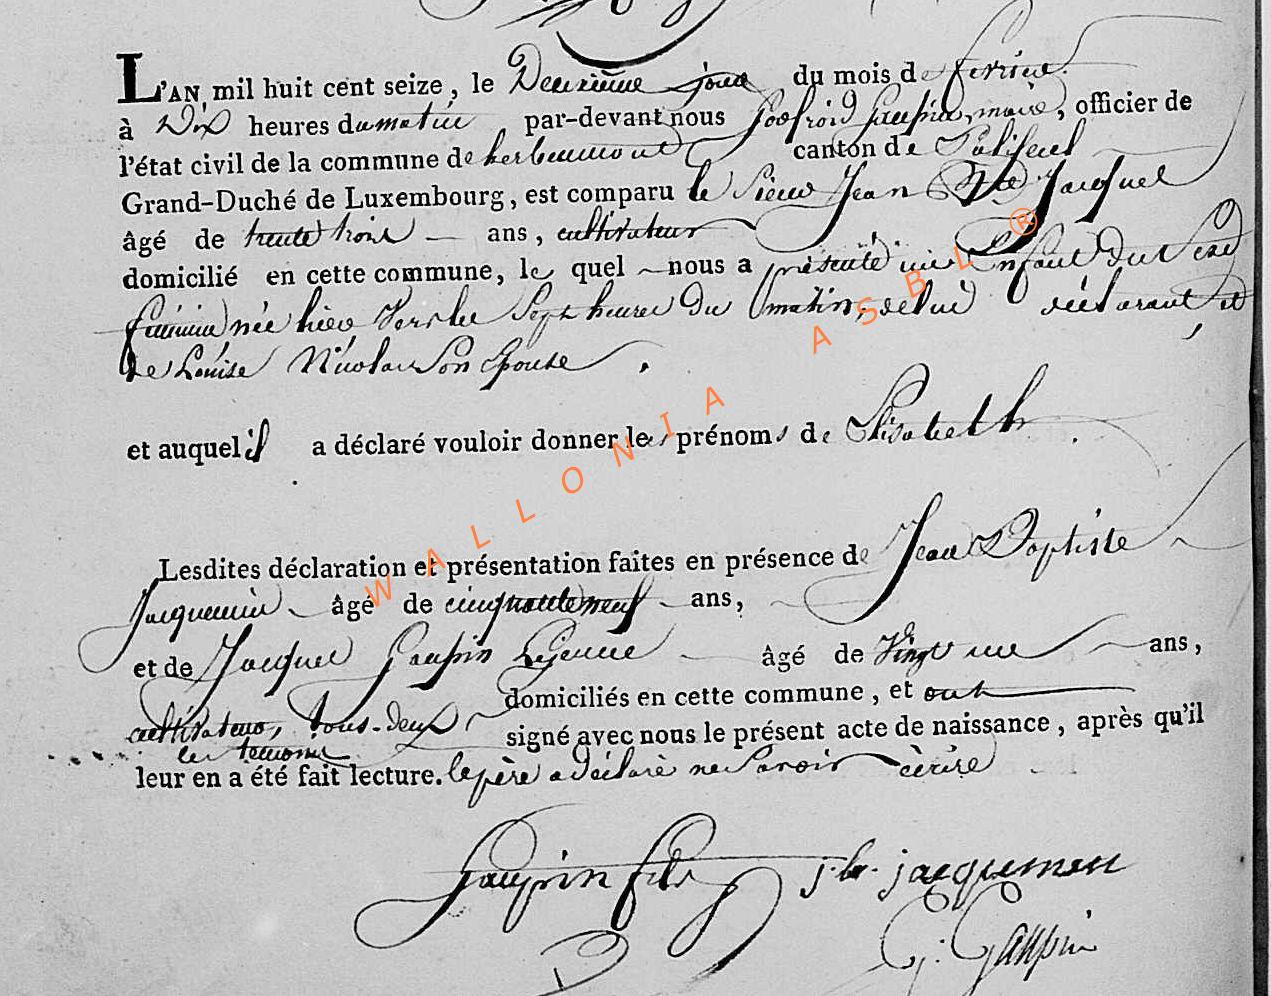 L'AN mil huit cent seize, le Deuxieme jour du mois de fevrier
à Dix heures du matin par-devant nous Godfroid Gaupin, maire, officier de
l'état civil de la commune de herbeumont canton de Paliseul
Grand-Duché de Luxembourg, est comparu le Sieur Jean Bte Jacques
âgé de trente trois ans, cultivateur
domicilié en cette commune, le quel nous a présenté un Enfant du Sexe
féminin née hier Vers les Sept heures du matin, de lui déclarant et
de Louise Nicolas Son Epouse,
et auquel il a déclaré vouloir donner les prénoms de Elisabeth.
Lesdites déclaration et présentation faites en présence de Jean Baptiste
Jacquemin âgé de cinquante neuf ans,
et de Jacques Gaupin Lejeune âgé de Vingt un ans,
cultivateurs, tous-deux domiciliés en cette commune, et ont
les temoins signé avec nous le présent acte de naissance, après qu'il
leur en a été fait lecture. le père a déclaré ne Savoir écrire
Gaupin fils j. b. jacquemin
G. Gaupin
WALLONIA ASBL ®